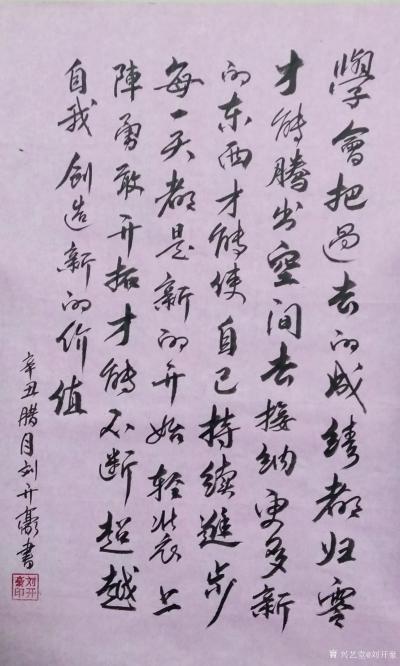 學會把過去的成績都归零
才能騰出空间去接纳更多新
的东西才能使自己持續進步
每一天都是新的开始轻装上
陣勇敢开拓才能不断超越
自我創造新的价值
辛丑腊月刘开豪書
刘开豪印
兴艺堂@刘开豪